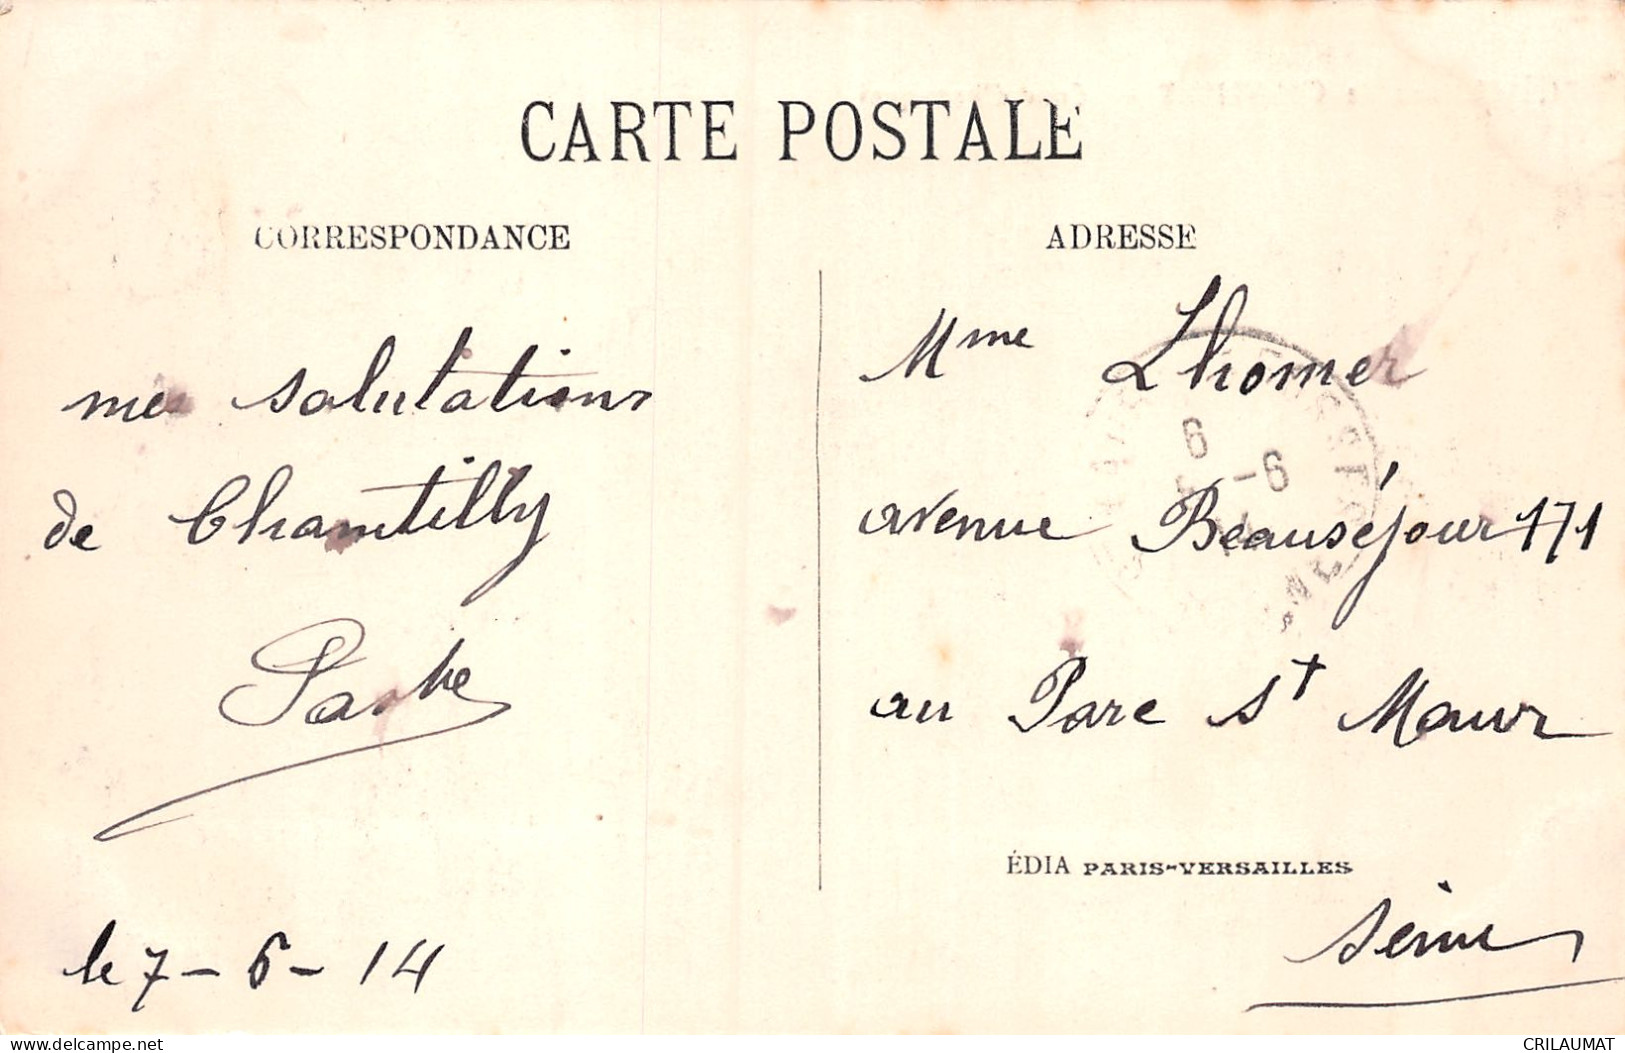 CARTE POSTALE
CORRESPONDANCE
ADRESSE
mes salutations
de Chantilly
le 7-6-14
Mme Lhomer
avenue Beauséjour 171
au Parc St Maur
ÉDIA PARIS-VERSAILLES
Seine
www.delcampe.net
CRILAUMAT